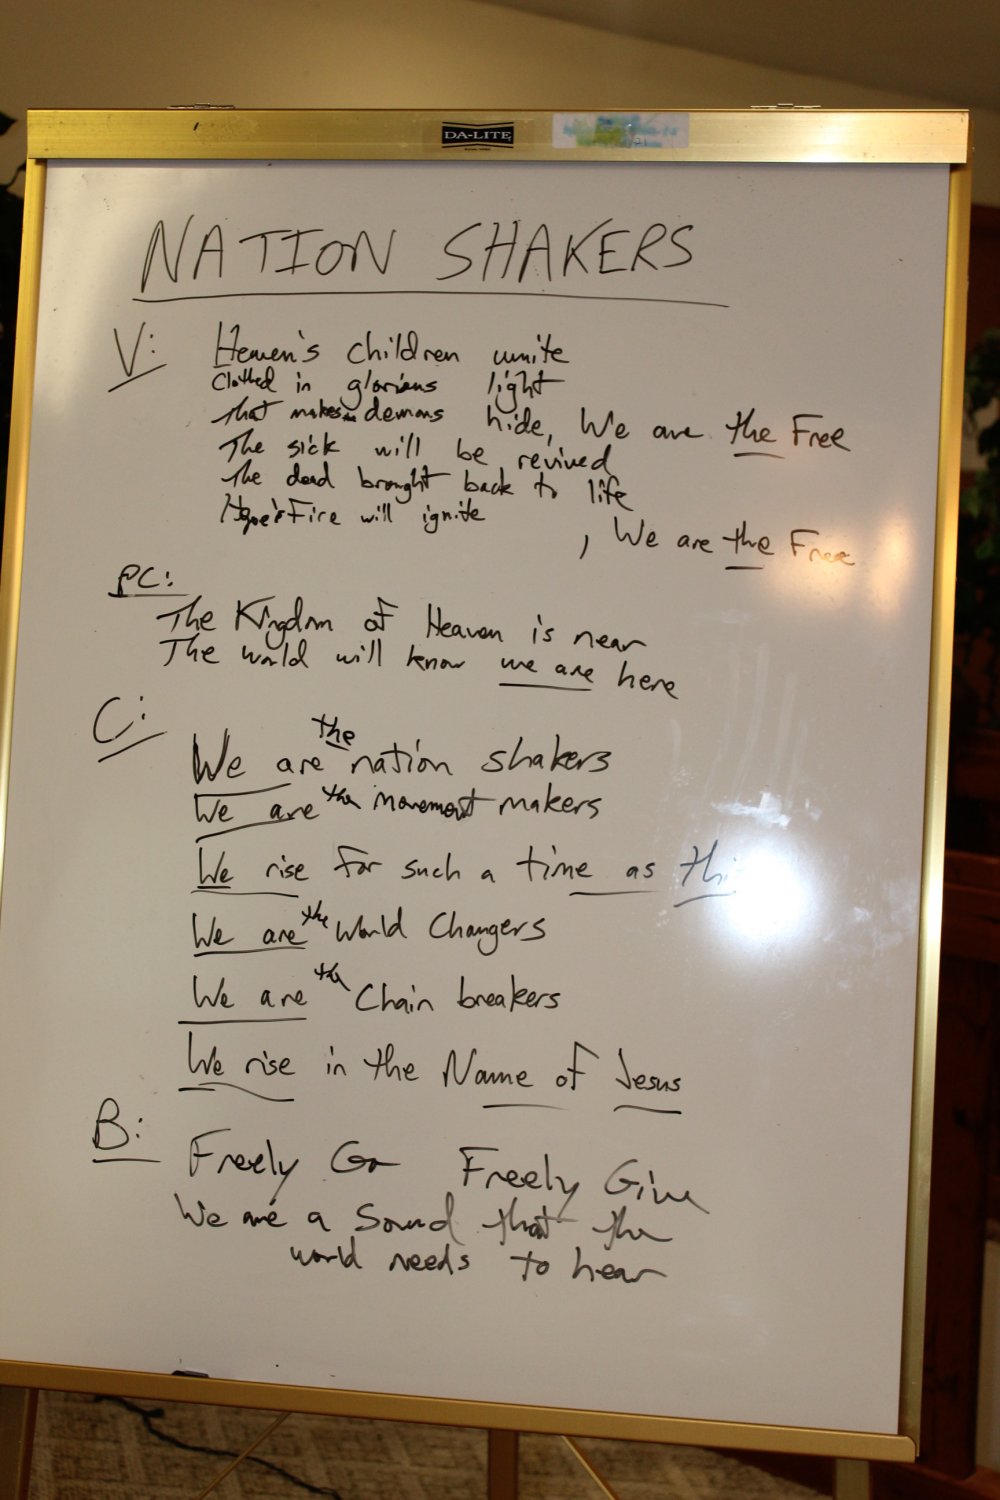 DA-LITE
NATION SHAKERS
V:
Heaven's children unite
Clothed in glorious light
That makes demons hide, We are the Free
The sick will be revived
The dead brought back to life
Fire will ignite
, We are the Free
PC:
The Kingdom of Heaven is near
The world will know we are here
C:
We are the nation shakers
We are the movement makers
We rise for such a time as
We are the World Changers
We are the Chain breakers
We rise in the Name of Jesus
B:
Freely Go Freely Give
We are a Sound that the
world needs to hear